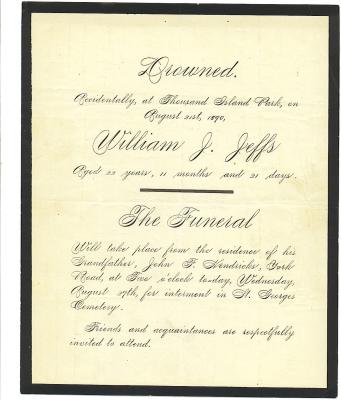 Drowned.
Accidentally, at Thousand Island Park, on
August 21st, 1890,
William J. Jeffs
Aged 22 years, 11 months and 21 days.
The Funeral
Will take place from the residence of his
Grandfather, John F. Hendricks, York
Road, at Two o'clock to-day, Wednesday,
August 27th, for interment in St. Georges
Cemetery.
Friends and acquaintances are respectfully
invited to attend.